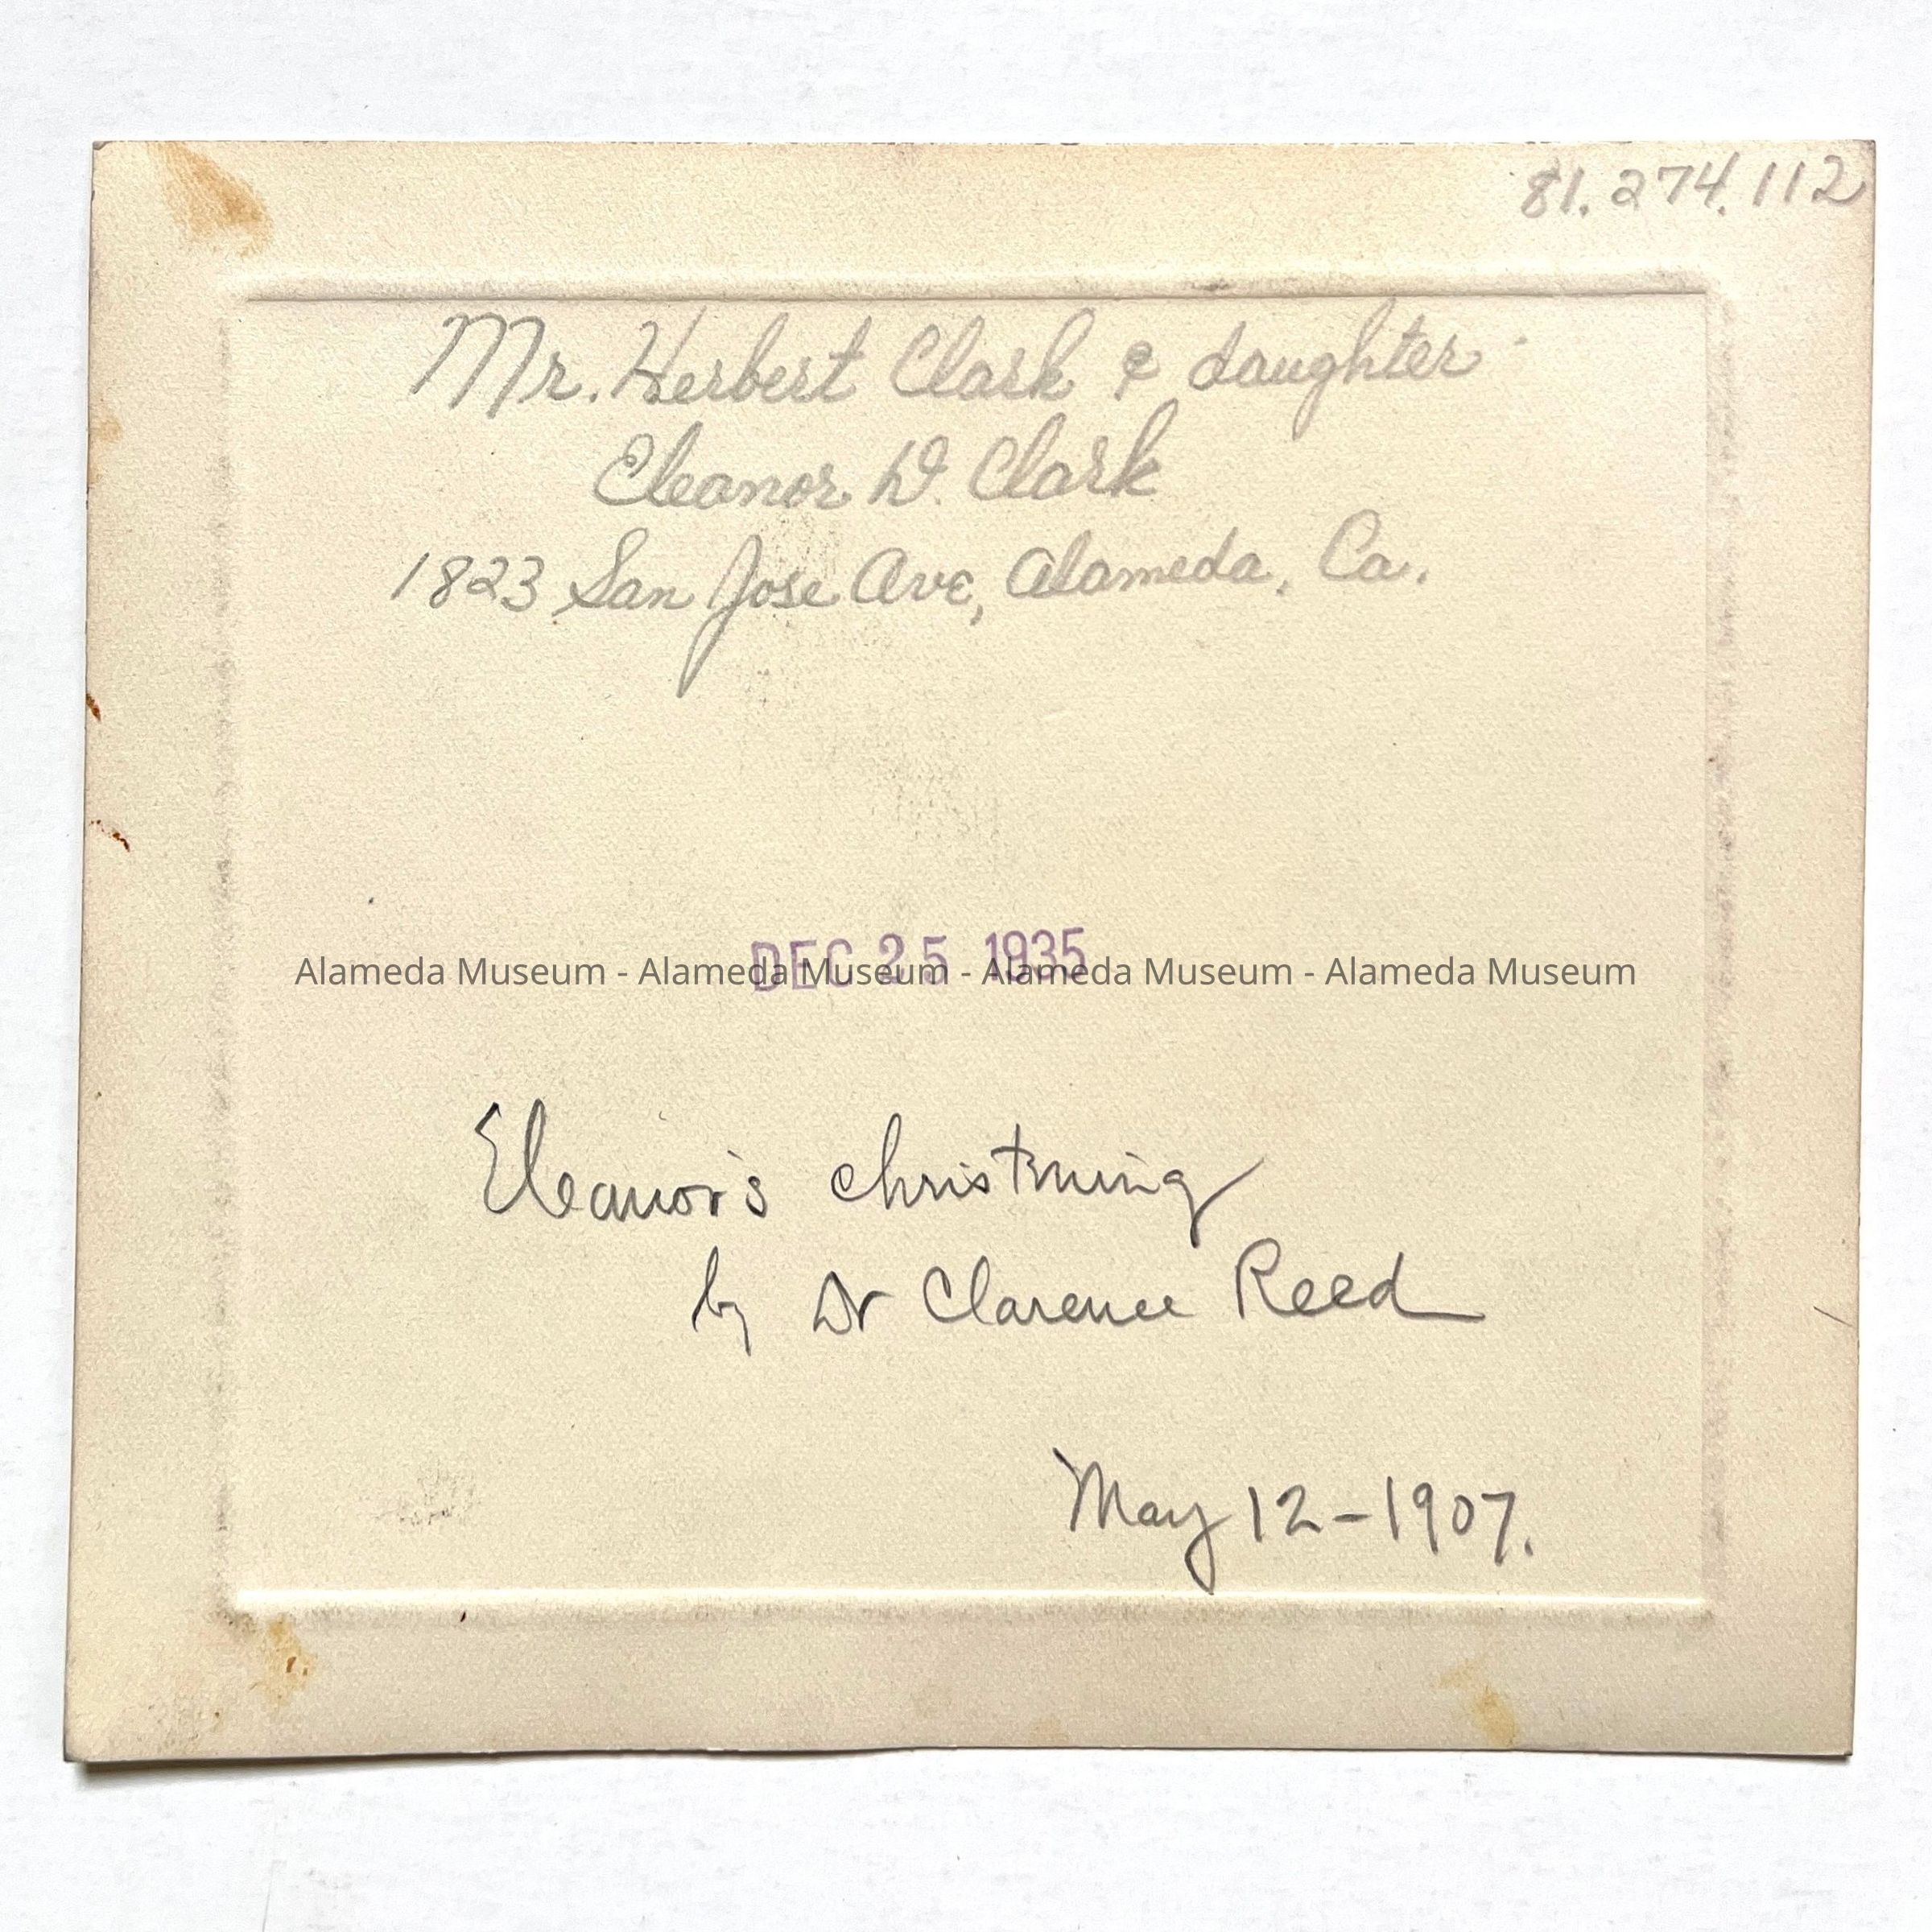 81.274.112
Mr. Herbert Clark & daughter
Eleanor D. Clark
1823 San Jose Ave, Alameda, Ca.
DEC 25 1935
Alameda Museum - Alameda Museum - Alameda Museum - Alameda Museum
Eleanor's christning
by Dr Clarence Reed
May 12-1907.